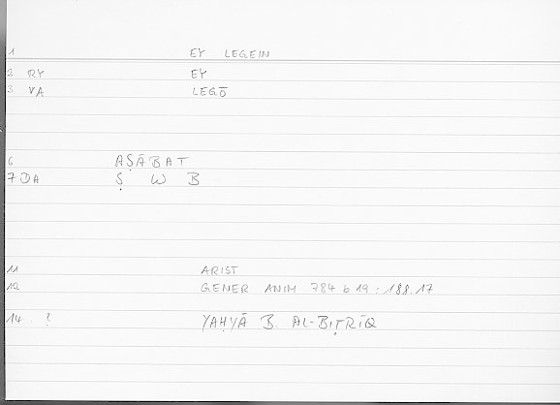 1 EY LEGEIN
2 RY EY
3 VA LEGŌ
6 AṢĀBAT
7 DA Ṣ W B
11 ARIST
12 GENER ANIM 784 b 19 : 188.17
14 ? YAḤYĀ B. AL-BIṬRĪQ